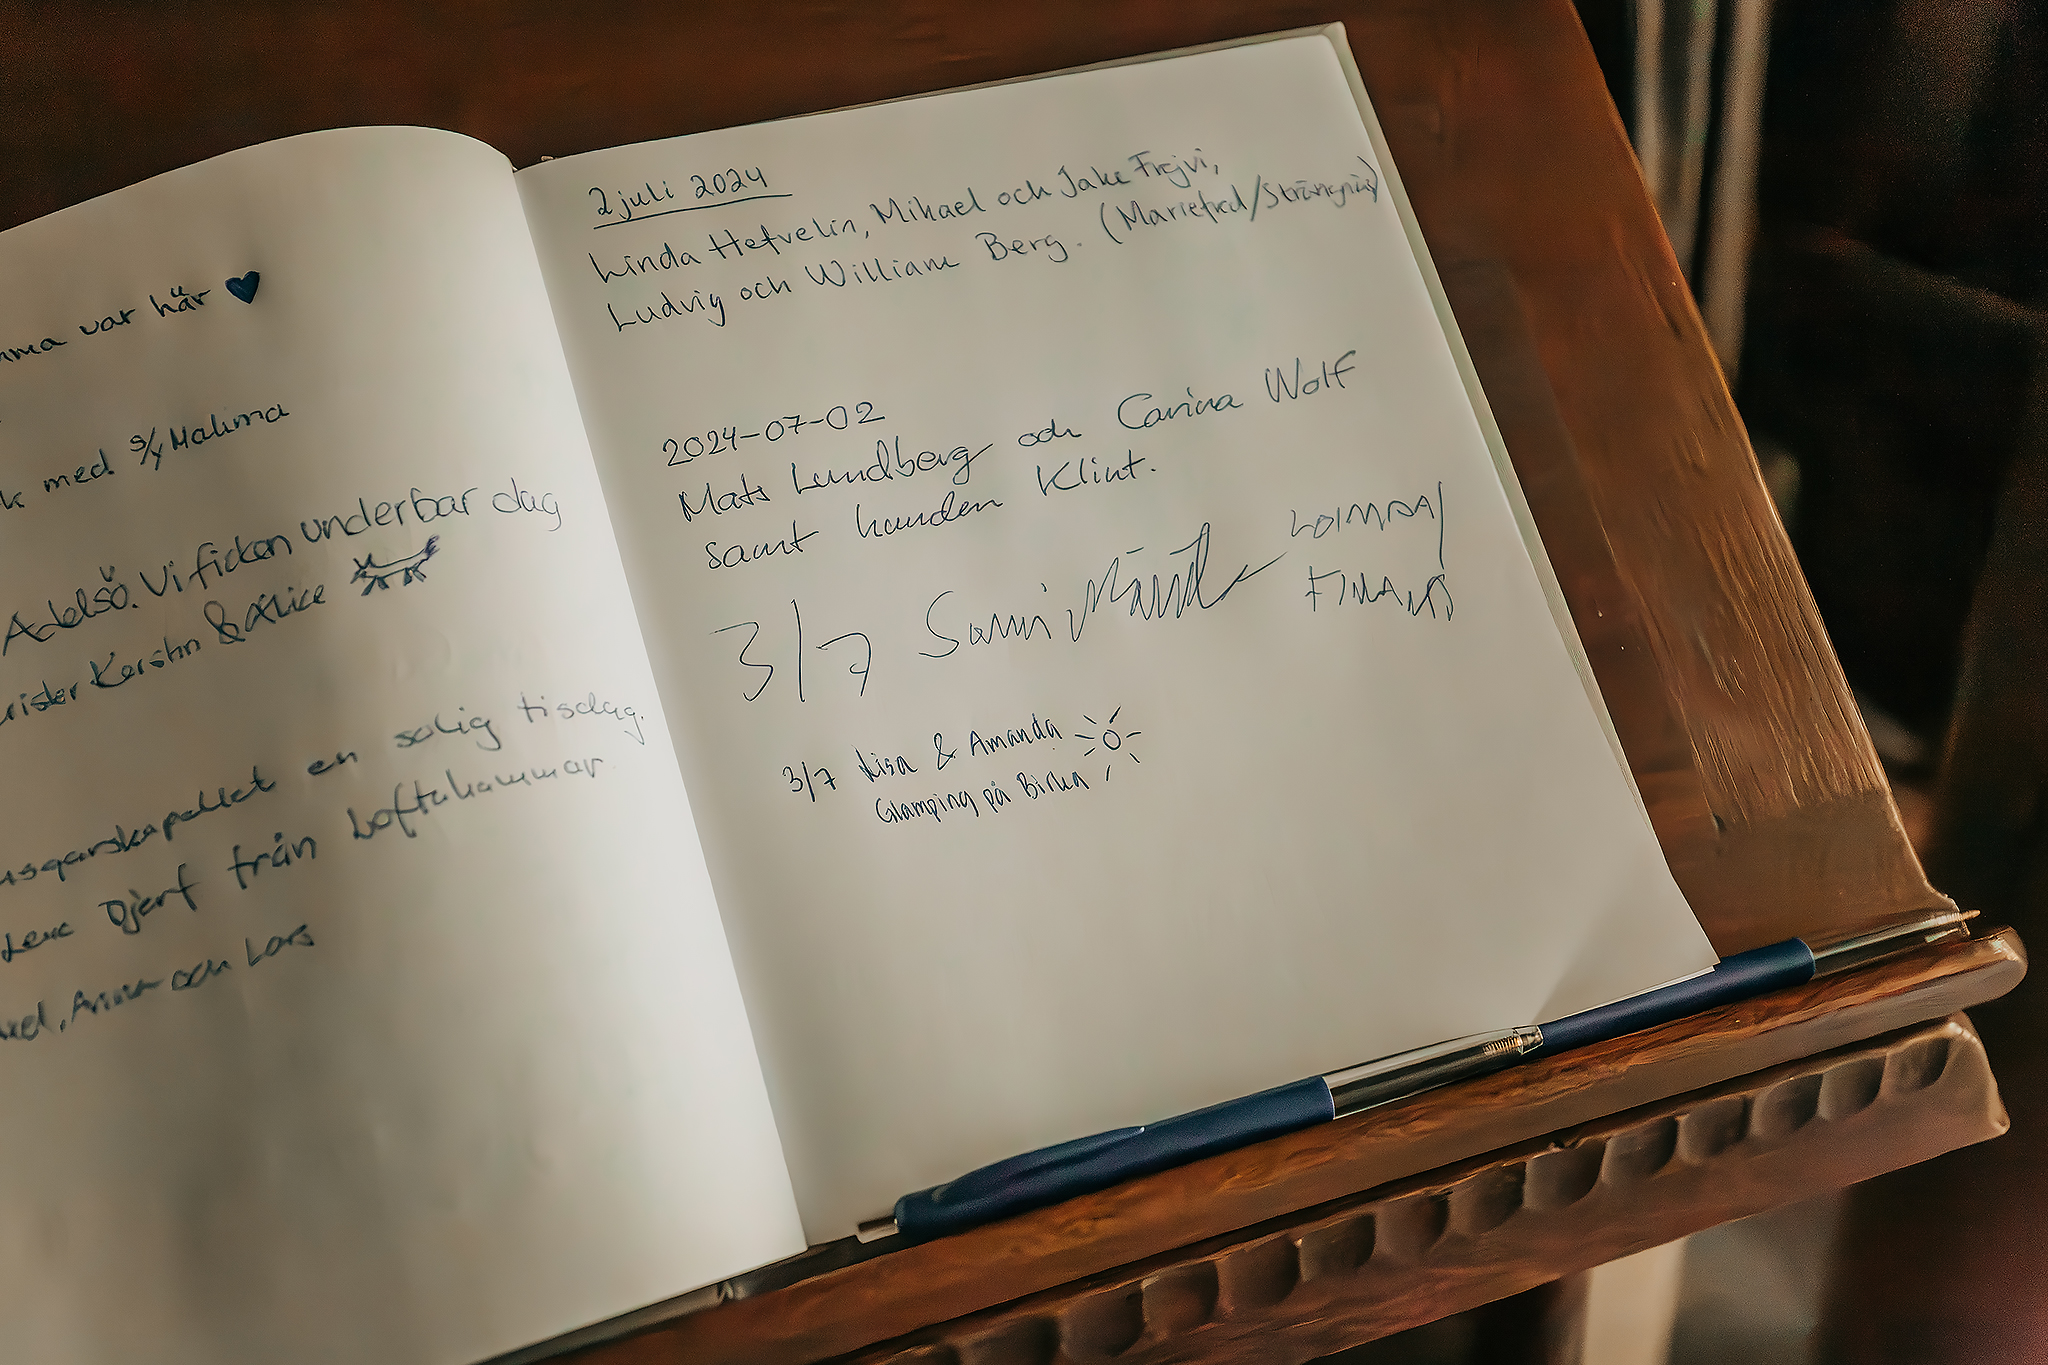 var här ♥
med S/Y Malima
Adelsö. Vi ficken underbar dag
Kerstin & Alice
en solig tisdag.
Djerf från Loftahammar
Anna och Lars
2 juli 2024
Linda Hefvelin, Mikael och Jake Frejvi,
Ludvig och William Berg. (Mariefred/Strängnäs)
2024-07-02
Mats Lundberg och Carina Wolf
samt hunden Klint.
3/7 Sami
3/7 Lisa & Amanda
Glamping på Birka